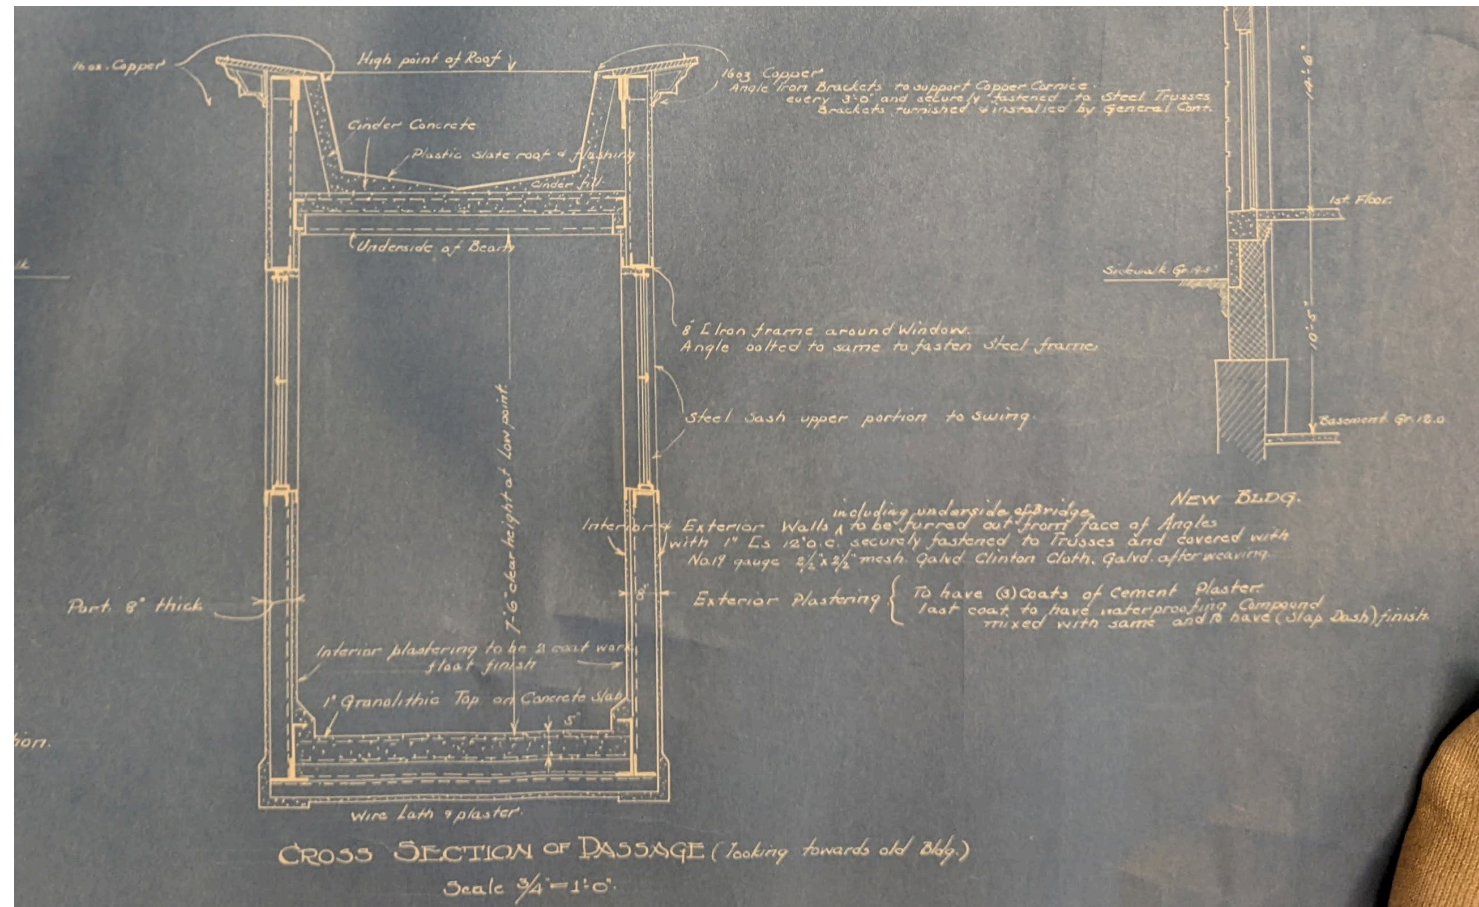 16oz. Copper
High point of Roof
16oz Copper
Angle Iron Brackets to support Copper Cornice.
every 3'-0" and securely fastened to Steel Trusses
Brackets furnished & installed by General Cont.
14'-6"
Cinder Concrete
Plastic slate roof & flashing
Cinder fill
Underside of Beam
1st. Floor.
Sidewalk Gr.
8" [ Iron frame around Window.
Angle bolted to same to fasten steel frame
10'-5"
Steel Sash upper portion to swing.
Basement Gr. 12.0
7'-6" clear height at Low point.
NEW BLDG.
including underside of Bridge
Interior & Exterior Walls ^ to be furred out from face of Angles
with 1" [s 12" o.c. securely fastened to Trusses and covered with
No.19 gauge 2½" x 2½" mesh. Galvd Clinton Cloth. Galvd. after weaving.
Part. 8" thick
8"
Exterior Plastering { To have (3) coats of Cement Plaster.
last coat to have waterproofing Compound
mixed with same and to have (Slap Dash) finish.
Interior plastering to be 2 coat work
float finish
1" Granolithic Top on Concrete Slab
5"
ion.
Wire Lath & plaster.
CROSS SECTION OF PASSAGE (looking towards old Bldg.)
Scale ¾" = 1'-0".